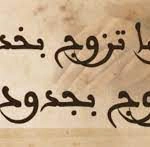 ما تزوج بخد
وج بجدود